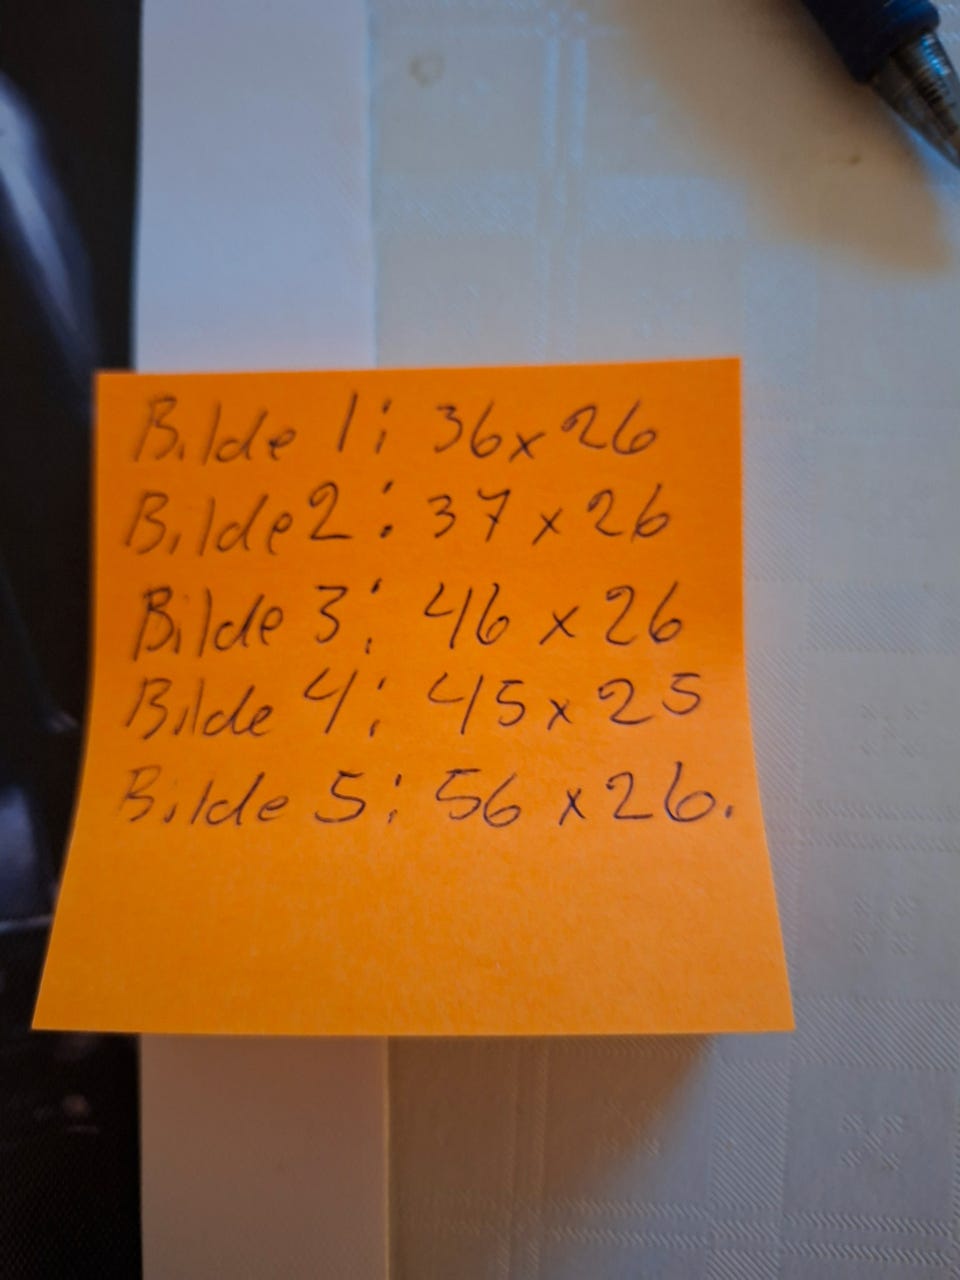 Bilde 1: 36x26
Bilde 2: 37 x 26
Bilde 3: 46 x 26
Bilde 4: 45 x 25
Bilde 5: 56 x 26.